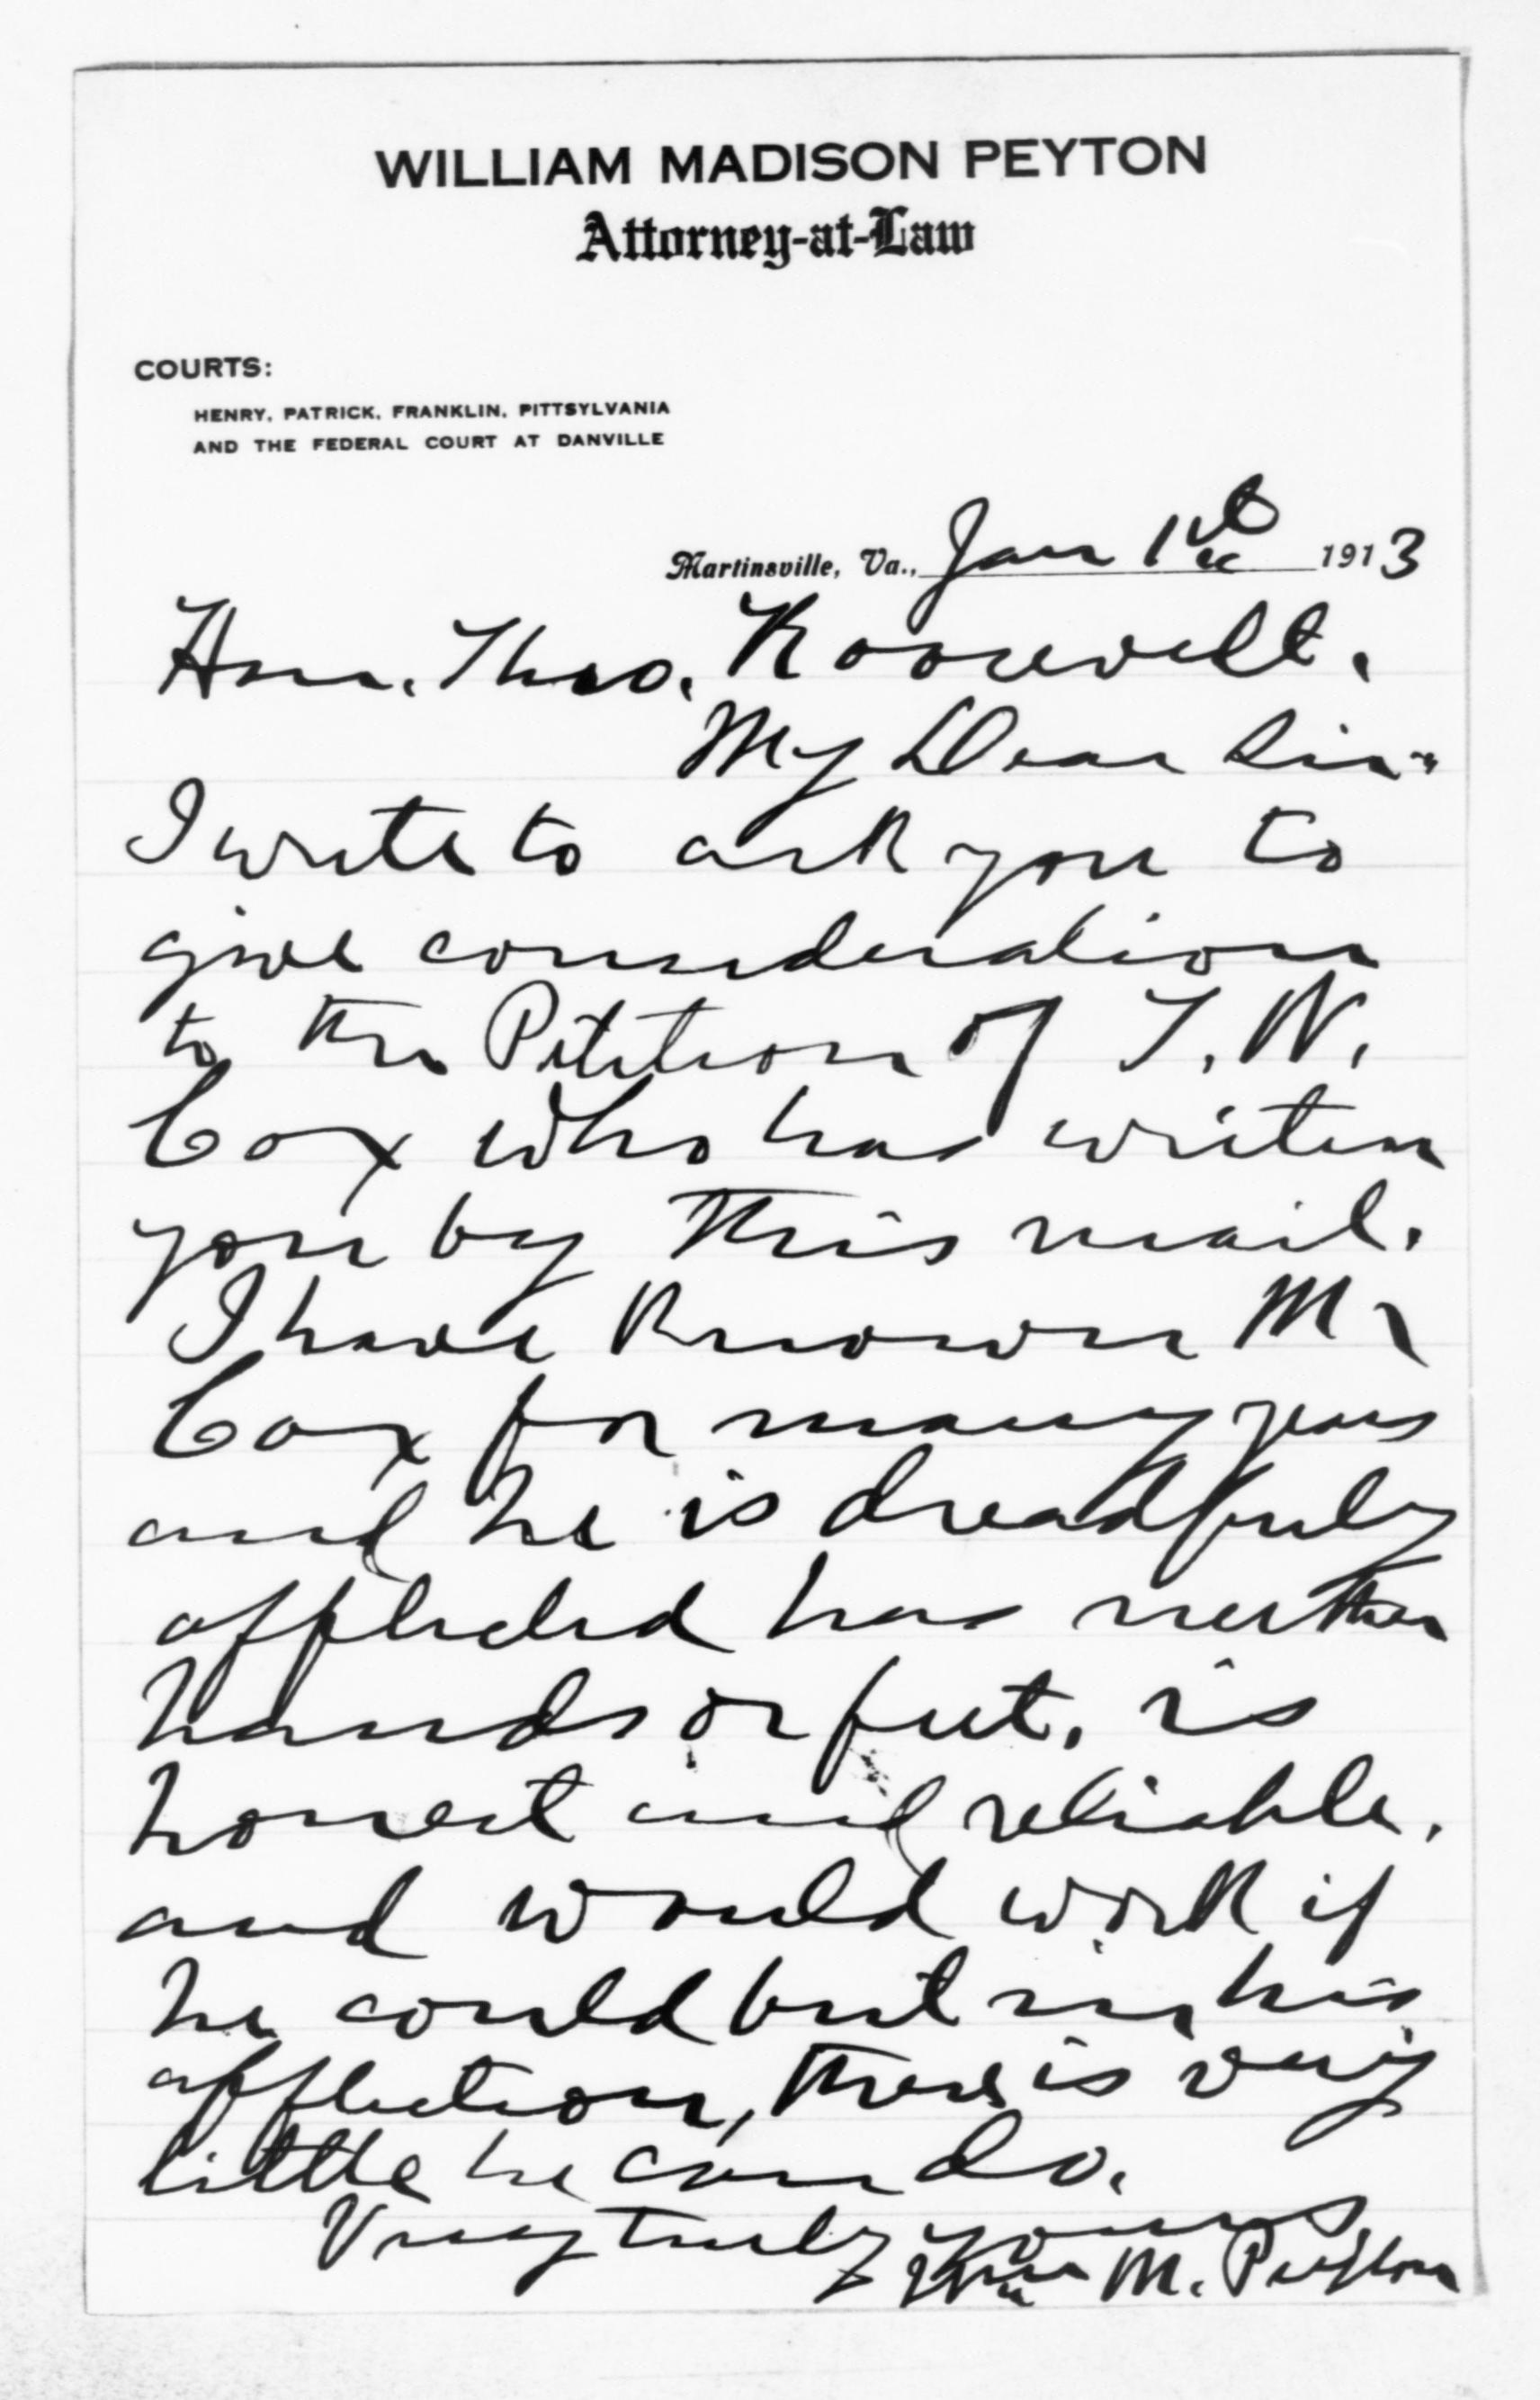 WILLIAM MADISON PEYTON
Attorney-at-Law
COURTS:
HENRY, PATRICK, FRANKLIN, PITTSYLVANIA
AND THE FEDERAL COURT AT DANVILLE
Martinsville, Va., Jan 1st 1913
Hon. Theo. Roosevelt.
My Dear Sir:
I write to ask you to
give consideration
to the Petition of T. W.
Cox who has writen
you by this mail.
I have known Mr
Cox for many years
and he is dreadfuly
afflicted has neither
hands or feet, is
honest and reliable,
and would work if
he could but in his
affliction, there is very
little he can do.
Very truly yours,
Wm M. Peyton